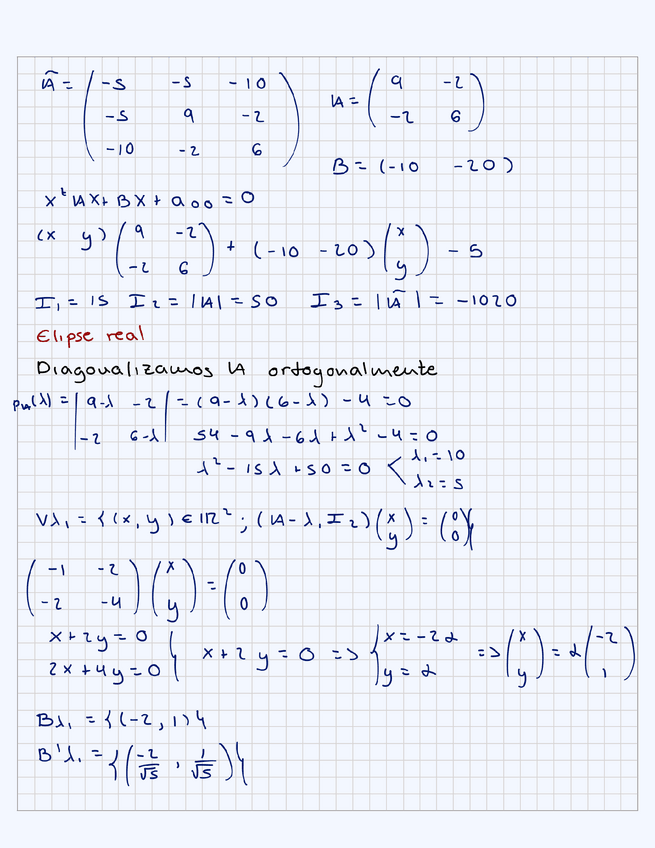 Ã = ( -5 -5 -10 ; -5 9 -2 ; -10 -2 6 )   A = ( 9 -2 ; -2 6 )
B = (-10 -20)
x^t A x + B x + a_00 = 0
(x y) ( 9 -2 ; -2 6 ) + (-10 -20) ( x ; y ) - 5
I_1 = 15 I_2 = |A| = 50 I_3 = |Ã| = -1020
Elipse real
Diagonalizamos A ortogonalmente
p_A(λ) = | 9-λ -2 ; -2 6-λ | = (9-λ)(6-λ) - 4 = 0
54 - 9λ - 6λ + λ² - 4 = 0
λ² - 15λ + 50 = 0 < λ_1 = 10 ; λ_2 = 5
Vλ_1 = {(x, y) ∈ ℝ² ; (A - λ_1 I_2) ( x ; y ) = ( 0 ; 0 )}
( -1 -2 ; -2 -4 ) ( x ; y ) = ( 0 ; 0 )
x + 2y = 0 ; 2x + 4y = 0 } x + 2y = 0 => { x = -2α ; y = α => ( x ; y ) = α ( -2 ; 1 )
Bλ_1 = {(-2, 1)}
B'λ_1 = {( -2/√5 , 1/√5 )}